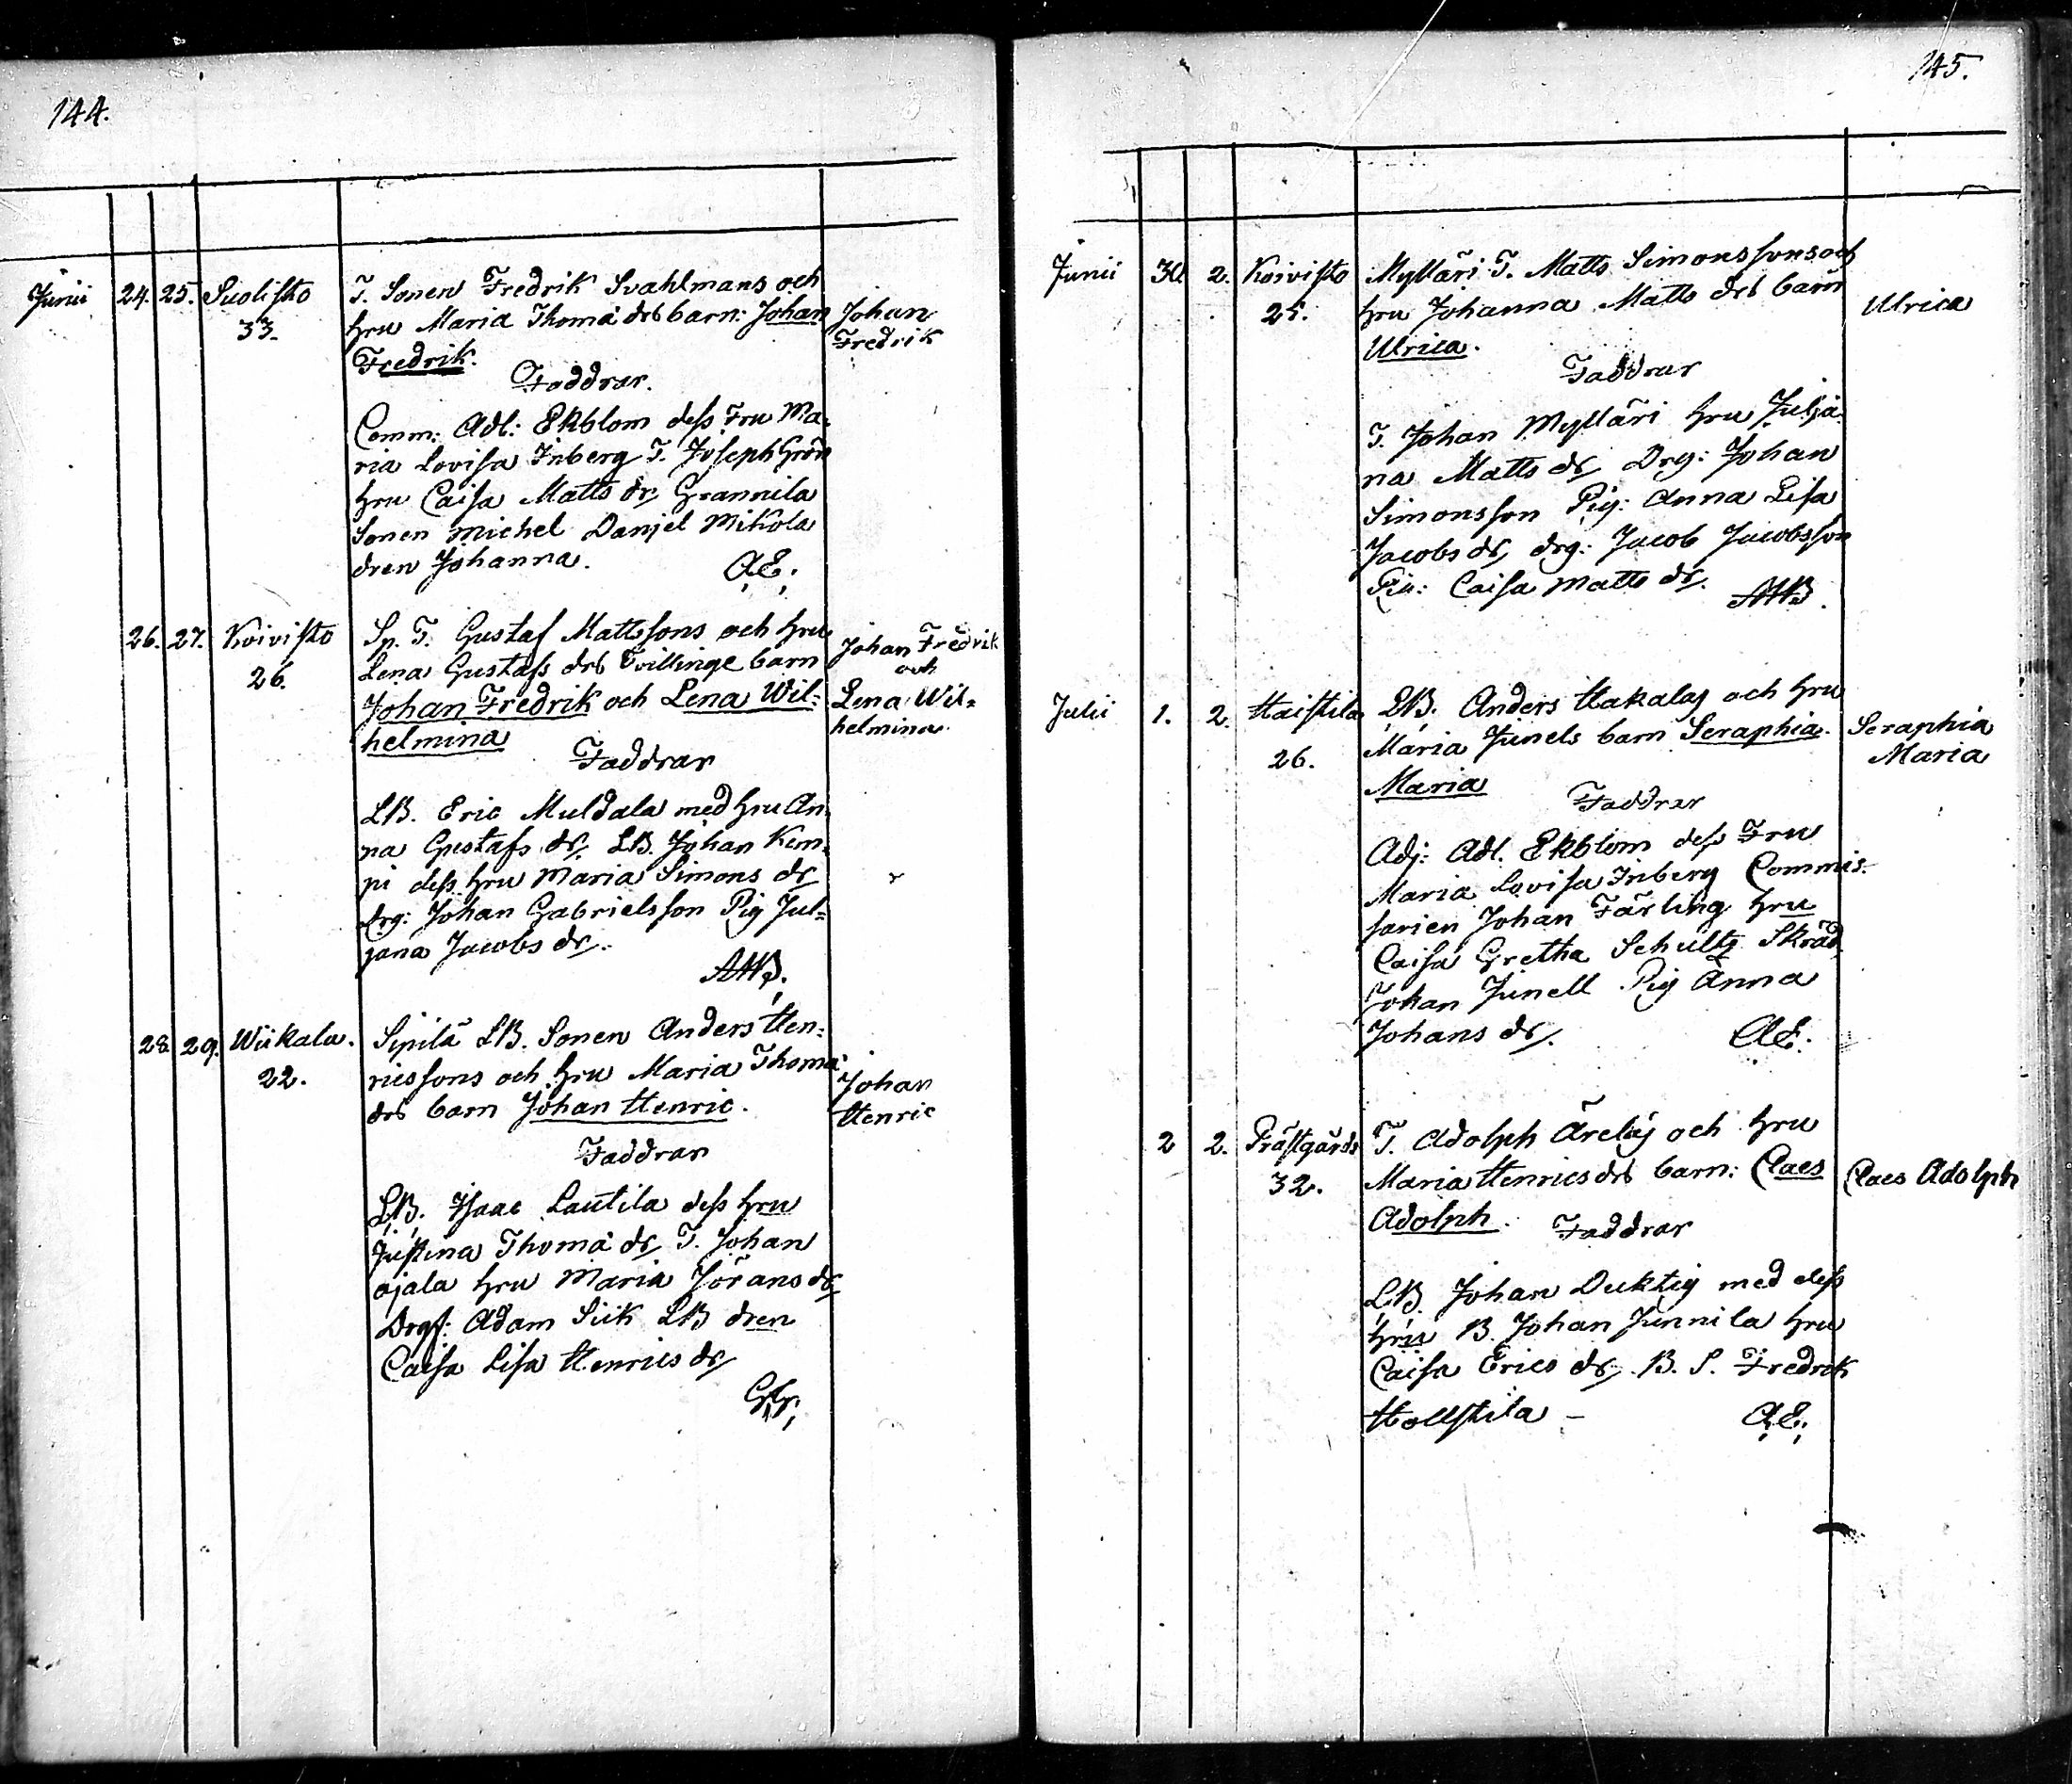 144.
Junii 24. 25. Suolisto T. Sonen Fredrik Svahlmans och
33. hru Maria Thomæ drs barn: Johan Johan
Fredrik. Fredrik
Faddrar.
Comm: Adl: Ekblom dess Fru Ma-
ria Lovisa Inberg T. Joseph Grön
hru Caisa Matts dr, Grannila
Sonen Michel Danjel Mikola
dren Johanna. A.E.
26. 27. Koivisto Sp. T. Gustaf Mattssons och hru Johan Fredrik
26. Lena Gustafs drs tvillinge barn och
Johan Fredrik och Lena Wil- Lena Wil-
helmina helmina
Faddrar
LB. Eric Muldala med hru An-
na Gustafs dr, LB. Johan Kem-
pi dess hru Maria Simons dr
drg: Johan Gabrielsson Pig Jul-
jana Jacobs dr.
AHB.
28. 29. Wiikala. Sipilä LB. Sonen Anders Hen-
22. ricssons och hru Maria Thomæ Johan
drs barn Johan Henric. Henric
Faddrar
LB. Isaac Lautila dess hru
Justina Thomæ dr, T. Johan
ojala hru Maria Jörans dr
Drgs: Adam Siik LB dren
Caisa Lisa Henrics dr
145.
Junii 30. 2. Koivisto Mylläri T. Matts Simonssons och
25. hru Johanna Matts drs barn Ulrica
Ulrica.
Faddrar
T. Johan Mylläri hru Julja-
na Matts dr, Drg: Johan
Simonsson Pig: Anna Lisa
Jacobs dr, drg: Jacob Jacobsson
Pig: Caisa Matts dr.
AHB.
Julii 1. 2. Haistila LB. Anders Hakalas och hru
26. Maria Junels barn Seraphia Seraphia
Maria Maria
Faddrar
Adj: Adl. Ekblom dess Fru
Maria Lovisa Inberg Commis-
sarien Johan Färling hru
Caisa Gretha Schultz Skräd.
Johan Junell Pig Anna
Johans dr. A.E.
2 2. Prästgårds T. Adolph Ärelas och hru
32. Maria Henrics drs barn: Claes Claes Adolph
Adolph. Faddrar
LB. Johan Duktig med dess
hru B. Johan Junnila hru
Caisa Erics dr, B. S. Fredrik
Hollstila – A.E.